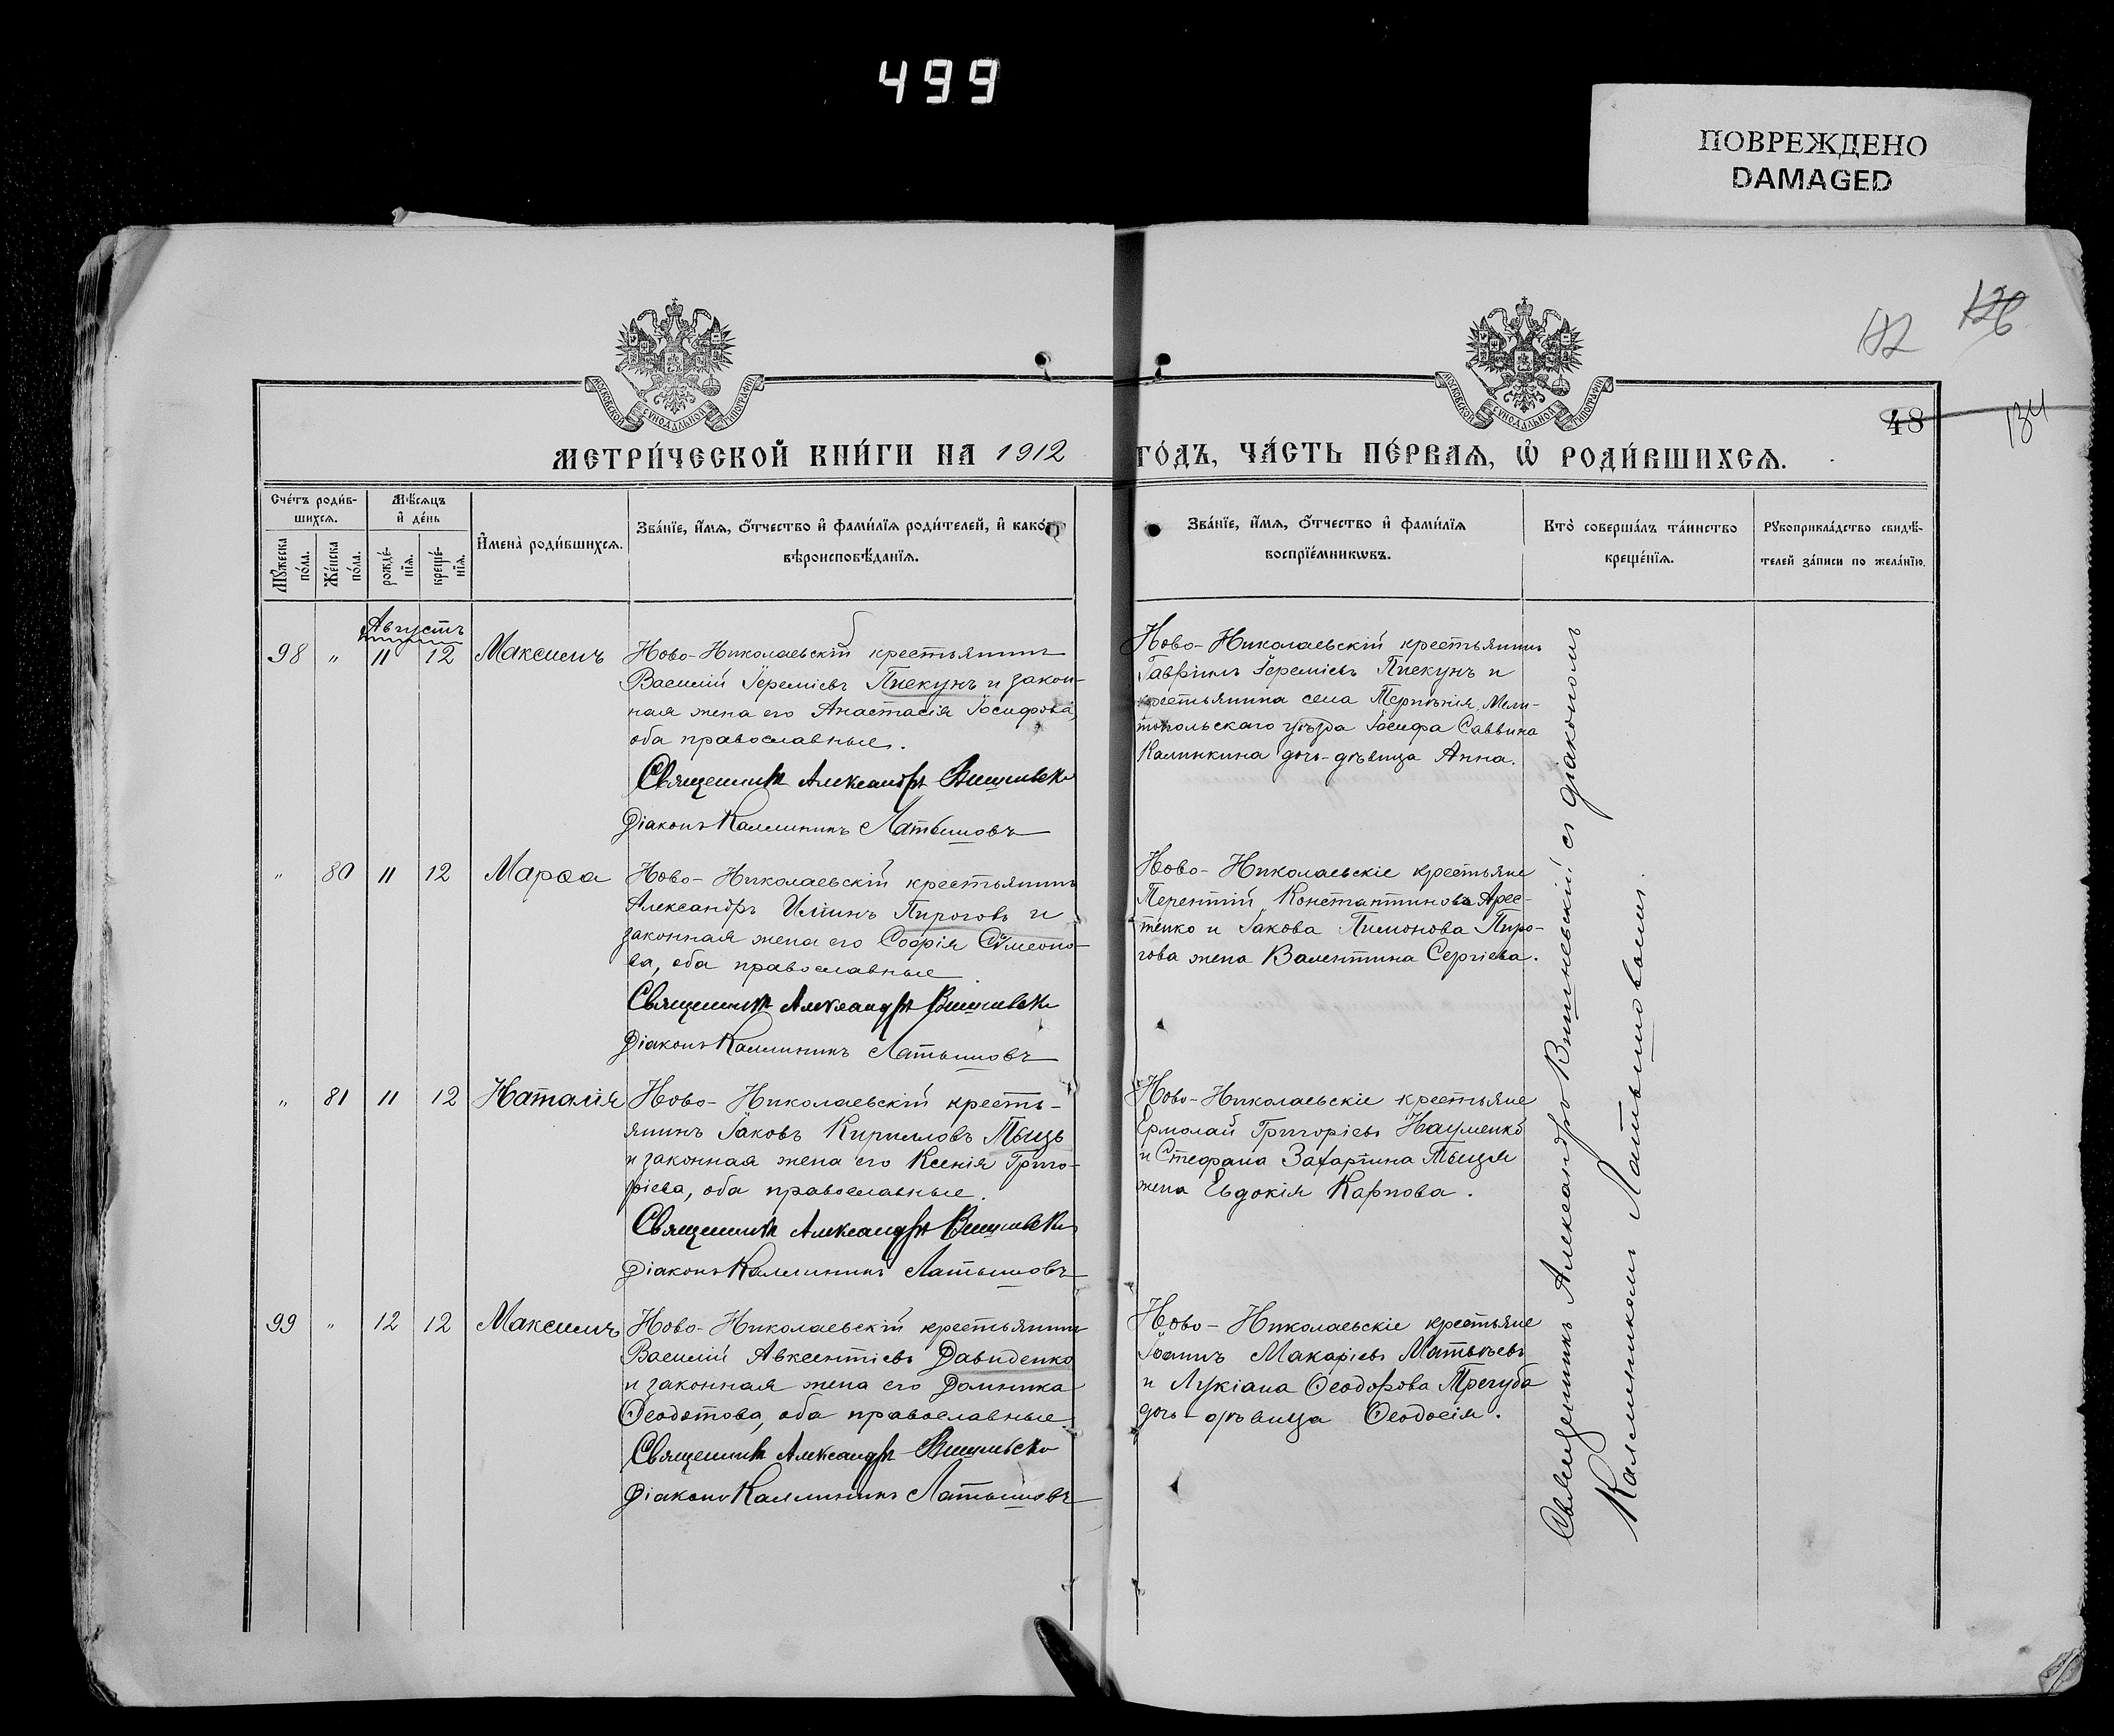 499
ПОВРЕЖДЕНО
DAMAGED
126
182
48
134
МОСКОВСКОЙ СѴНОДАЛЬНОЙ ТИПОГРАФІИ
МОСКОВСКОЙ СѴНОДАЛЬНОЙ ТИПОГРАФІИ
МЕТРИ́ЧЕСКОЙ КНИ́ГИ НА 1912 ГО́ДЪ, ЧА́СТЬ ПЕ́РВАЯ, Ѡ РОДИ́ВШИХСЯ.
Сче́тъ роди́в-
шихся.
Мѣ́сяцъ
и де́нь
Мꙋ́жеска по́ла.
Же́нска по́ла.
рожде́-
нїя.
креще́-
нїя.
Имена̀ роди́вшихся.
Зва́нїе, и́мя, о́тчество и фами́лїя роди́телей, и како́гѡ
вѣроисповѣ́данїя.
Зва́нїе, и́мя, о́тчество и фами́лїя
воспрїе́мникѡвъ.
Кто̀ соверша́лъ та́инство
креще́нїя.
Рꙋкоприкла́дство свидѣ́-
телей за́писи по жела́нїю.
Августъ
98 " 11 12 Максимъ
Ново-Николаевскій крестьянинъ
Василій Іереміевъ Пискунъ и закон-
ная жена его Анастасія Іосифова,
оба православные.
Священникъ Александръ Вишневскій
Діаконъ Каллиникъ Латышовъ
Ново-Николаевскій крестьянинъ
Гавріилъ Іереміевъ Пискунъ и
крестьянина села Терпѣнія, Мели-
топольскаго уѣзда Іосифа Саввина
Калинкина дочь-дѣвица Анна.
" 80 11 12 Марѳа
Ново-Николаевскій крестьянинъ
Александръ Иліинъ Пироговъ и
законная жена его Софія Сѵмеоно-
ва, оба православные
Священникъ Александръ Вишневскій
Діаконъ Каллиникъ Латышовъ
Ново-Николаевскіе крестьяне
Терентій Константиновъ Арес-
тенко и Іакова Пимонова Пиро-
гова жена Валентина Сергіева.
" 81 11 12 Наталія
Ново-Николаевскій кресть-
янинъ Іаковъ Кирилловъ Тыць
и законная жена его Ксенія Григо-
ріева, оба православные.
Священникъ Александръ Вишневскій
Діаконъ Каллиникъ Латышовъ
Ново-Николаевскіе крестьяне
Ермолай Григоріевъ Науменко
и Стефана Захаріина Тыця
жена Евдокія Карпова.
99 " 12 12 Максимъ
Ново-Николаевскій крестьянинъ
Василій Авксентіевъ Давиденко
и законная жена его Домника
Ѳеодотова, оба православные.
Священникъ Александръ Вишневскій
Діаконъ Каллиникъ Латышовъ
Ново-Николаевскіе крестьяне
Іоаннъ Макаріевъ Матвѣевъ
и Лукіана Ѳеодорова Трегуба
дочь-дѣвица Ѳеодосія.
Священникъ Александръ Вишневскій съ діакономъ
Каллиникомъ Латышовымъ.